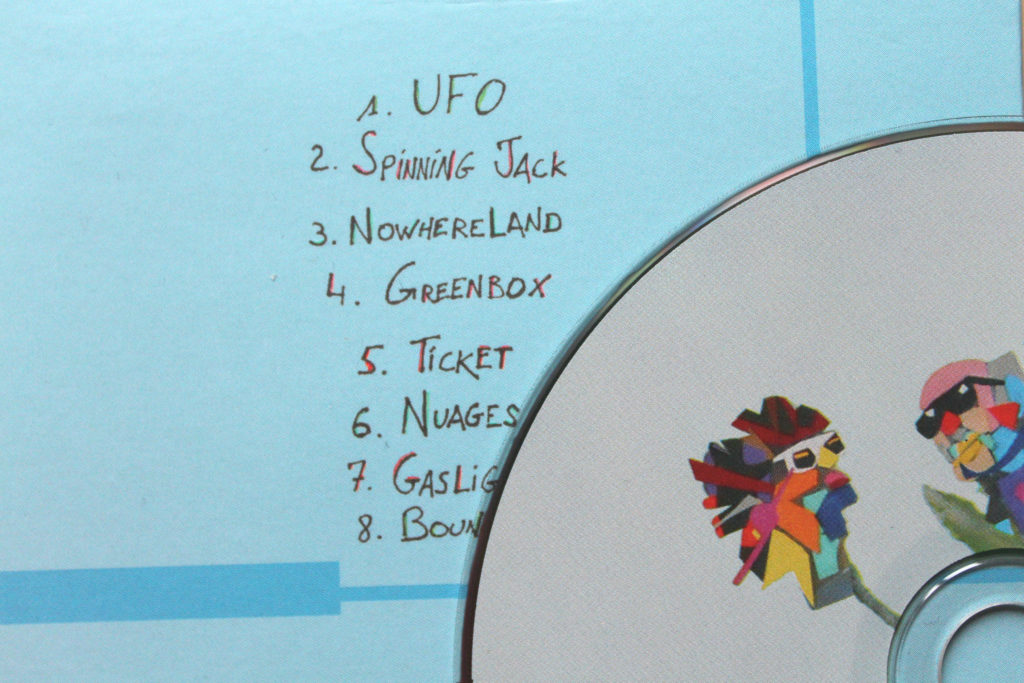 1. UFO
2. Spinning Jack
3. NowhereLand
4. Greenbox
5. Ticket
6. Nuages
7. Gaslig
8. Boun